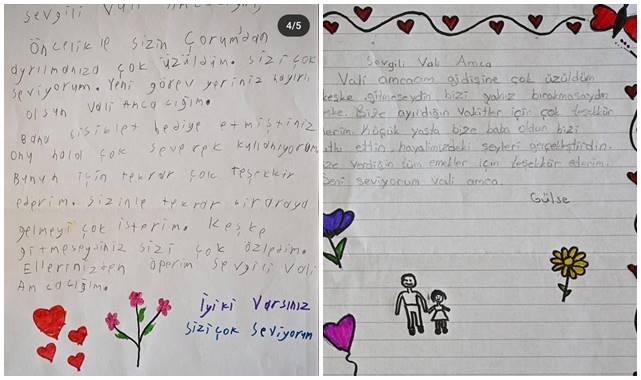 sevgili Vali
4/5
Öncelikle sizin Çorum'dan
ayrılmanıza çok üzüldüm. sizi çok
seviyorum. Yeni görev yeriniz hayırlı
olsun Vali Amcacığım.
Bana bisiklet hediye etmiştiniz
onu hala çok severek kullanıyorum
Bunun için tekrar çok teşekkür
ederim. sizinle tekrar bir araya
gelmeyi çok isterim. Keşke
gitmeseydiniz sizi çok özledim.
Ellerinizten öperim sevgili Vali
Amcacığım.
İyiki varsınız
sizi çok seviyorum
Sevgili Vali Amca
Vali amcacım gidişine çok üzüldüm
keşke gitmeseydin bizi yalnız bırakmasaydın
keşke. Bize ayırdığın vakitler için çok teşekkür
ederim. Küçük yaşta bize baba oldun bizi
mutlu ettin hayalimizdeki şeyleri gerçekleştirdin.
bize verdiğin tüm emekler için teşekkür ederim.
Seni seviyorum Vali amca.
Gülse